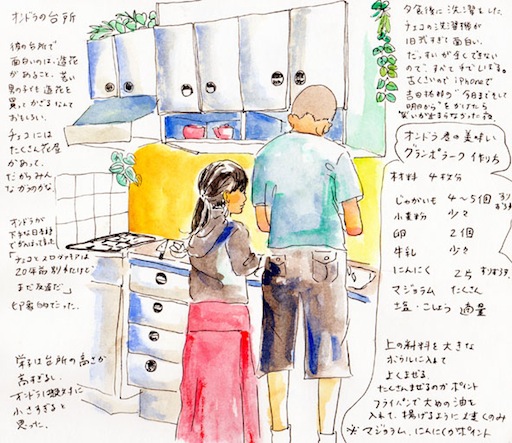 オンドラの台所
彼の台所で
面白いのは、造花
があること。若い
男の子も造花を
買ってかざるなんて
おもしろい。
チェコには
たくさん花屋
があって、
だからみん
オンドラが
下手な日本語
でがんばって言った
「チェコとスロヴァキアは
20年前別れたけど
まだ友達だ」
印象的でった。
栄子は台所の高さが
高すぎるし
小さすぎると
思った。
夕食後に洗濯をした
チェコの洗濯機が
旧式すぎて面白い。
だっすいが全くできない
ので、すべて手でしぼる。
古くさいので iPhoneで
吉田拓郎の "今日までそして
明日から"をかけたら
笑いが止まらなかった夜
オンドラ君の美味しい
ブランボラーク 作り方
材料 4枚分
じゃがいも 4〜5個
小麦粉 少々
卵 2個
牛乳 少々
にんにく 2片
マジョラム たくさん
塩・こしょう 適量
上の材料を大きな
ボウルに入れて
よくまぜる
たくさんまぜるのがポイント
フライパンで大めの油を
入れて、揚げるように
※マジョラム、にんにくがポイント